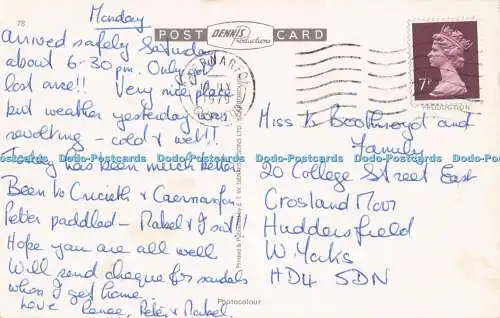 78
Monday
POST CARD
DENNIS
Productions
Arrived safely Saturday
about 6-30 pm. Only got
lost once!! Very nice place
but weather yesterday was
revolting cold & wet!!
Today has been much better
Been to Criccieth & Caernarfon
Peter paddled - Mabel & I sat!!
Hope you are all well
Will send cheque for sandals
when I get home.
Love Renee, Peter & Mabel.
1979
7P
Miss B Boothroyd and
Family
20 College Street East
Crosland Moor
Huddersfield
W. Yorks
HD4 5DN
Photocolour
Dodo-Postcards Dodo-Postcards Dodo-Postcards Dodo-Postcards